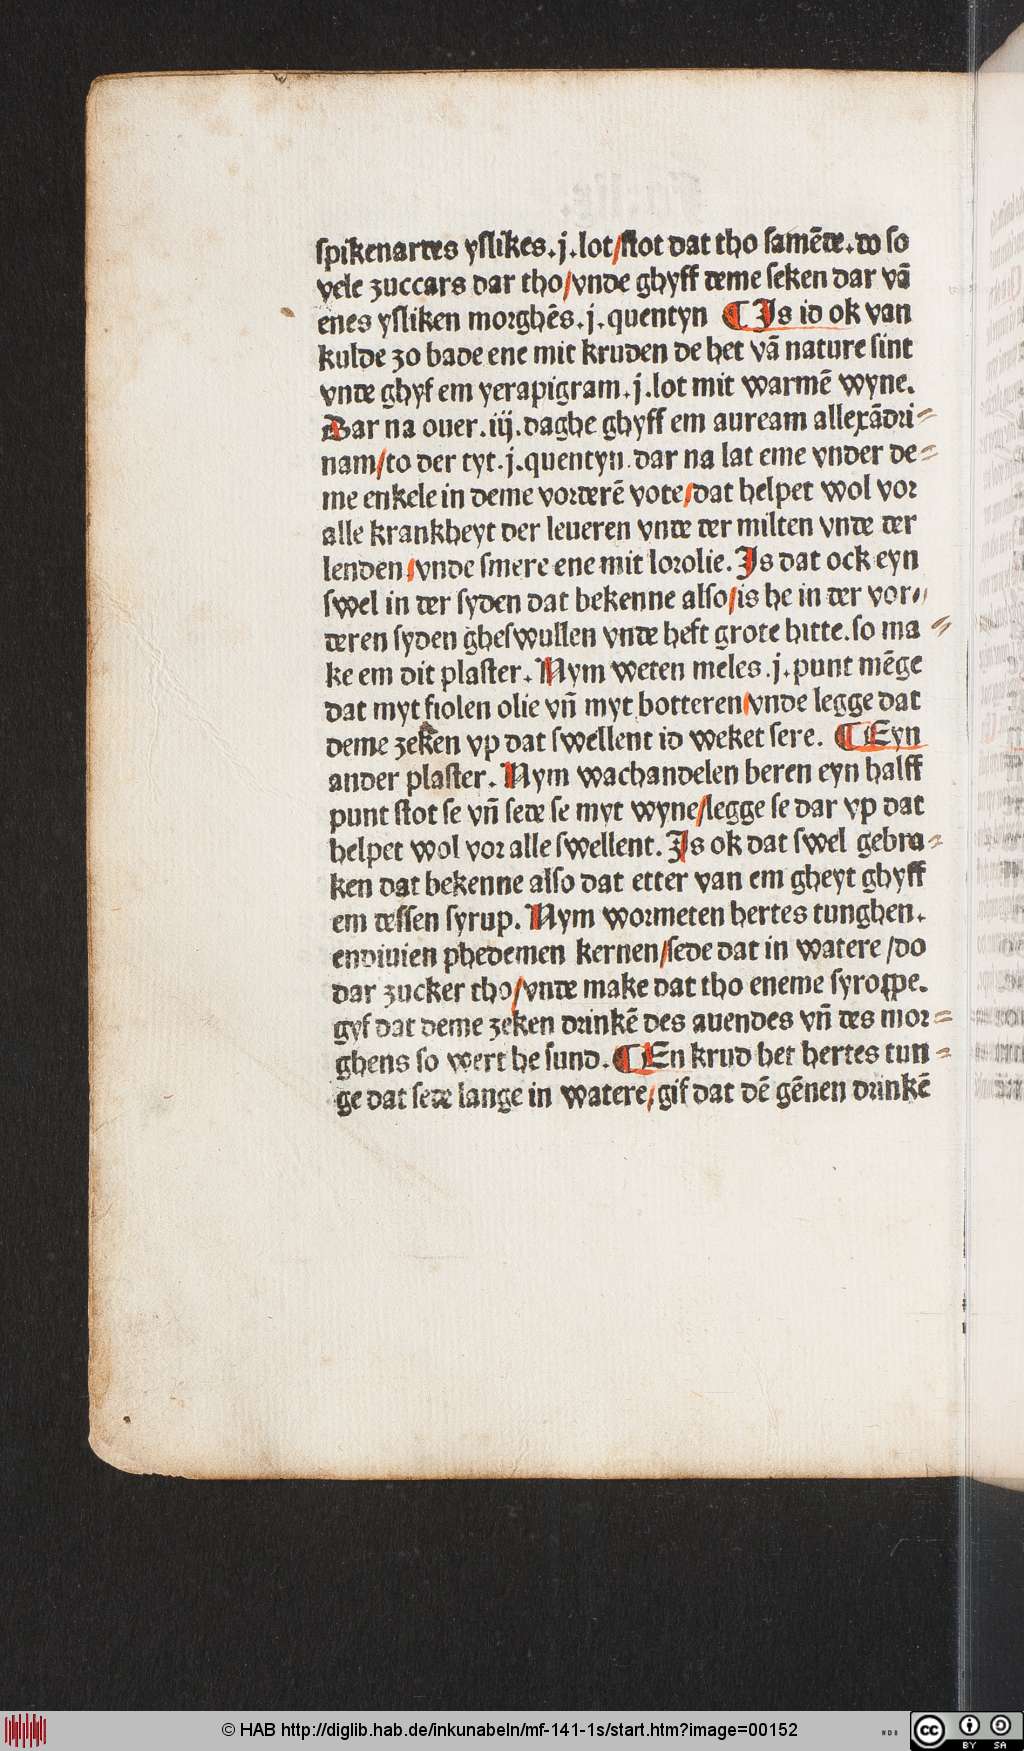 ſpikenardes yſlikes.j.lot/ſtot dat tho ſamēde.do ſo
vele zuccars dar tho/vnde ghyff deme ſeken dar vā
enes yſliken morghēs.j.quentyn ¶ Js id ok van
kulde zo bade ene mit kruden de het vā nature ſint
vnde ghyf em yerapigram.j.lot mit warmē wyne.
Dar na ouer.iij.daghe ghyff em auream allexādri⸗
nam/to der tyt.j.quentyn.dar na lat eme vnder de⸗
me enkele in deme vorderē vote/dat helpet wol vor
alle krankheyt der leueren vnde der milten vnde der
lenden/vnde ſmere ene mit lorolie. Js dat ock eyn
ſwel in der ſyden dat bekenne alſo/is he in der vor⸗
deren ſyden gheſwullen vnde heft grote hitte.ſo ma⸗
ke em dit plaſter. Nym weten meles.j.punt mēge
dat myt fiolen olie vn̄ myt botteren/vnde legge dat
deme zeken vp dat ſwellent id weket ſere. ¶ Eyn
ander plaſter. Nym wachandelen beren eyn halff
punt ſtot ſe vn̄ ſede ſe myt wyne/legge ſe dar vp dat
helpet wol vor alle ſwellent. Js ok dat ſwel gebra⸗
ken dat bekenne alſo dat etter van em gheyt ghyff
em deſſen ſyrup. Nym wormeten hertes tunghen.
endiuien phedemen kernen/ſede dat in watere/do
dar zucker tho/vnde make dat tho eneme ſyroppe.
gyf dat deme zeken drinkē des auendes vn̄ des mor⸗
ghens ſo wert he ſund. ¶ En krud het hertes tun⸗
ge dat ſede lange in watere/gif dat dē gēnen drinkē
© HAB http://diglib.hab.de/inkunabeln/mf-141-1s/start.htm?image=00152
cc BY SA